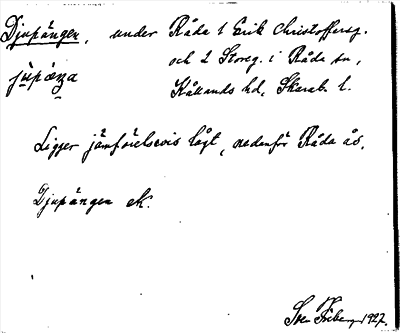 Djupängen, under Råda 1 Erik Christoffersg.
och 2 Storeg. i Råda sn,
jùpæŋa
Kållands hd, Skarab. l.
Ligger jämförelsevis lågt, nedanför Råda ås.
Djupängen EK.
Sven Friberg 1927.